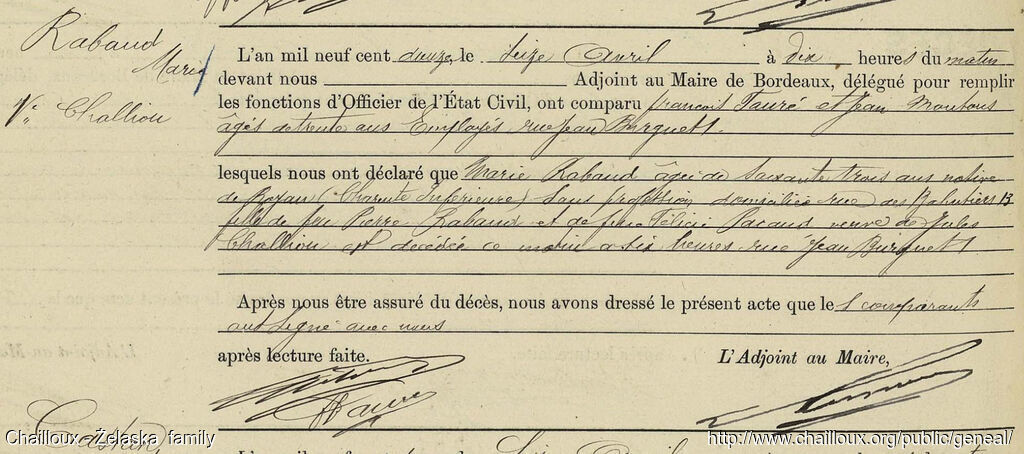 Rabaud
Marie
Vve Challiou
L'an mil neuf cent douze, le Seize Avril à dix heures du matin
devant nous Adjoint au Maire de Bordeaux, délégué pour remplir
les fonctions d'Officier de l'État Civil, ont comparu François Fauré et Jean
âgés de trente ans Employés rue Jean Burguet 1.
lesquels nous ont déclaré que Marie Rabaud âgée de Soixante trois ans native
de Royan (Charente Inférieure) Sans profession domiciliée rue des 13
fille de feu Pierre Rabaud et de feue Félicie veuve de Jules
Challiou est décédée ce matin à six heures rue Jean Burguet 1
Après nous être assuré du décès, nous avons dressé le présent acte que les comparants
ont Signé avec nous
après lecture faite. L'Adjoint au Maire,
Fauré
Chailloux _ Żelaska family
http://www.chailloux.org/public/geneal/